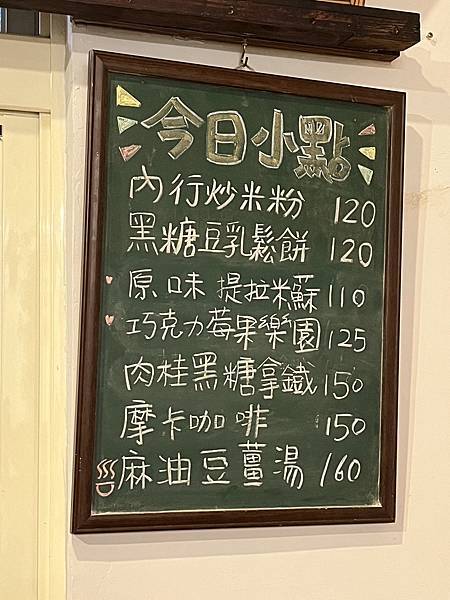 今日小點
內行炒米粉 120
黑糖豆乳鬆餅 120
原味提拉米蘇 110
巧克力莓果樂園 125
肉桂黑糖拿鐵 150
摩卡咖啡 150
麻油豆薑湯 160